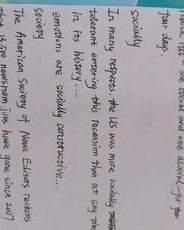 four days.
socially
In many respects, the US was more socially
tolerant entering this recession than at any time
in its history...
emotions are socially constructive...
society
The American Society of News Editors reckons
that 13,500 newsroom jobs have gone since 2007